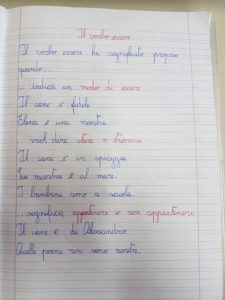 Il verbo essere
Il verbo essere ha significato proprio
quando...
... indica un modo di essere
Il cane è fedele.
Elena è una maestra.
... vuol dire stare o trovarsi
Il cane è in spiaggia.
La maestra è al mare.
I bambini sono a scuola.
... significa appartenere o non appartenere
Il cane è di Alessandro.
Quelle penne non sono nostre.